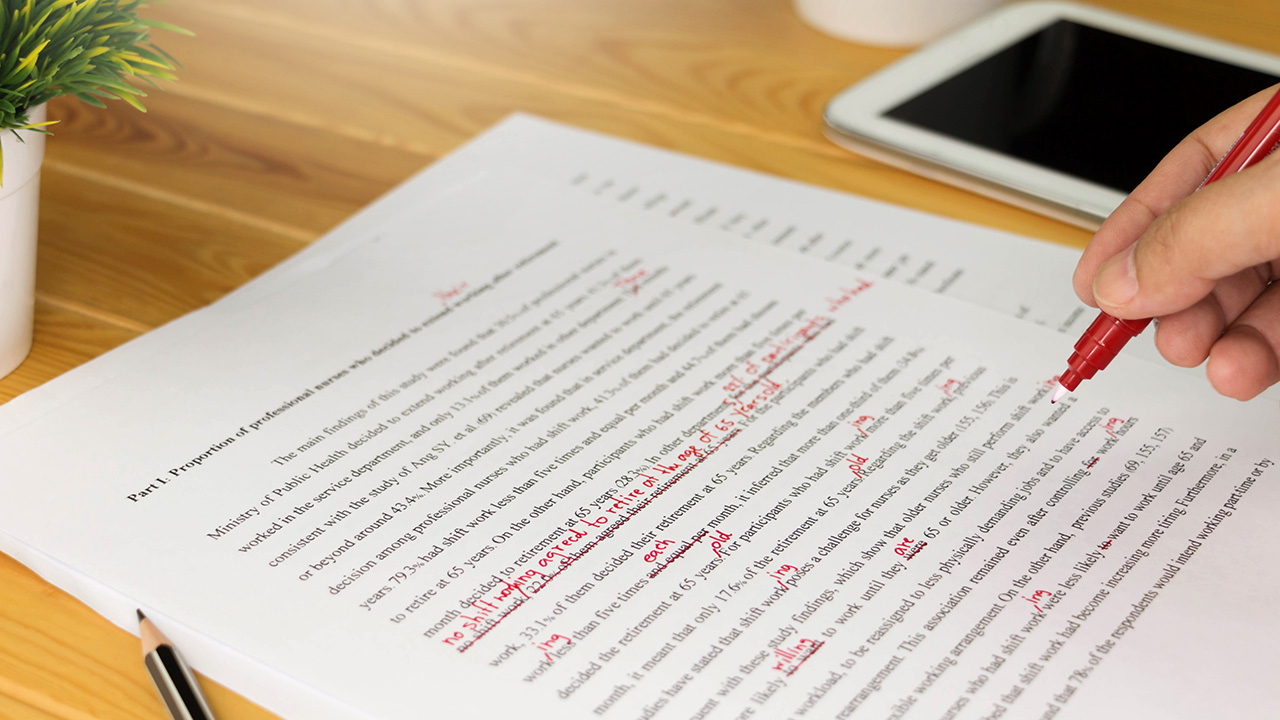 Part I. Proportion of professional nurses who decided to extend working after retirement
The main findings of this study were found that 39.5% of professional nurses in
Ministry of Public Health decided to extend working after retirement at 65 years. 41.3% of them
worked in the service department, and only 13.1% of them worked in other department.
consistent with the study of Ang SY, et al (69), revealed that nurses wanted to work until 65 years
or beyond around 43.4%. More importantly, it was found that in service department, the retirement
decision among professional nurses who had shift work, 41.3% of them had decided to retire at 65
years. 79.3% had shift work less than five times and equal per month and 44.3% of them had
to retire at 65 years. On the other hand, participants who had shift work more than five times per
month decided to retirement at 65 years (28.3%). In other department of participants who had
no shift working agreed to retire at the age of 65 years old
no shift work, 22.0% of them agreed their retirement at 65 years. For the participants who had shift
work, 33.1% of them decided their retirement at 65 years. Regarding the members who had shift
ing each
work less than five times and equal per month, it inferred that more than one-third of them (34.8%
old ing
decided the retirement at 65 years for participants who had shift work more than five times per
old ing
month, it meant that only 17.6% of the retirement at 65 years. Regarding the shift work previous
ing
udies have stated that shift work poses a challenge for nurses as they get older (155, 156). This is
ing
ent with these study findings, which show that older nurses who still perform shift work
willing are
ore likely to want to work until they were 65 or older. However, they also wanted
workload, to be reassigned to less physically demanding jobs and to have access to
ing
rearrangement. This association remained even after controlling for work hours
xible working arrangement. On the other hand, previous studies (69, 155, 157)
ing
rses who had shift work were less likely to want to work until age 65 and
bed that shift work had become increasing more tiring. Furthermore, in a
d that 78% of the respondents would intend working part time or by